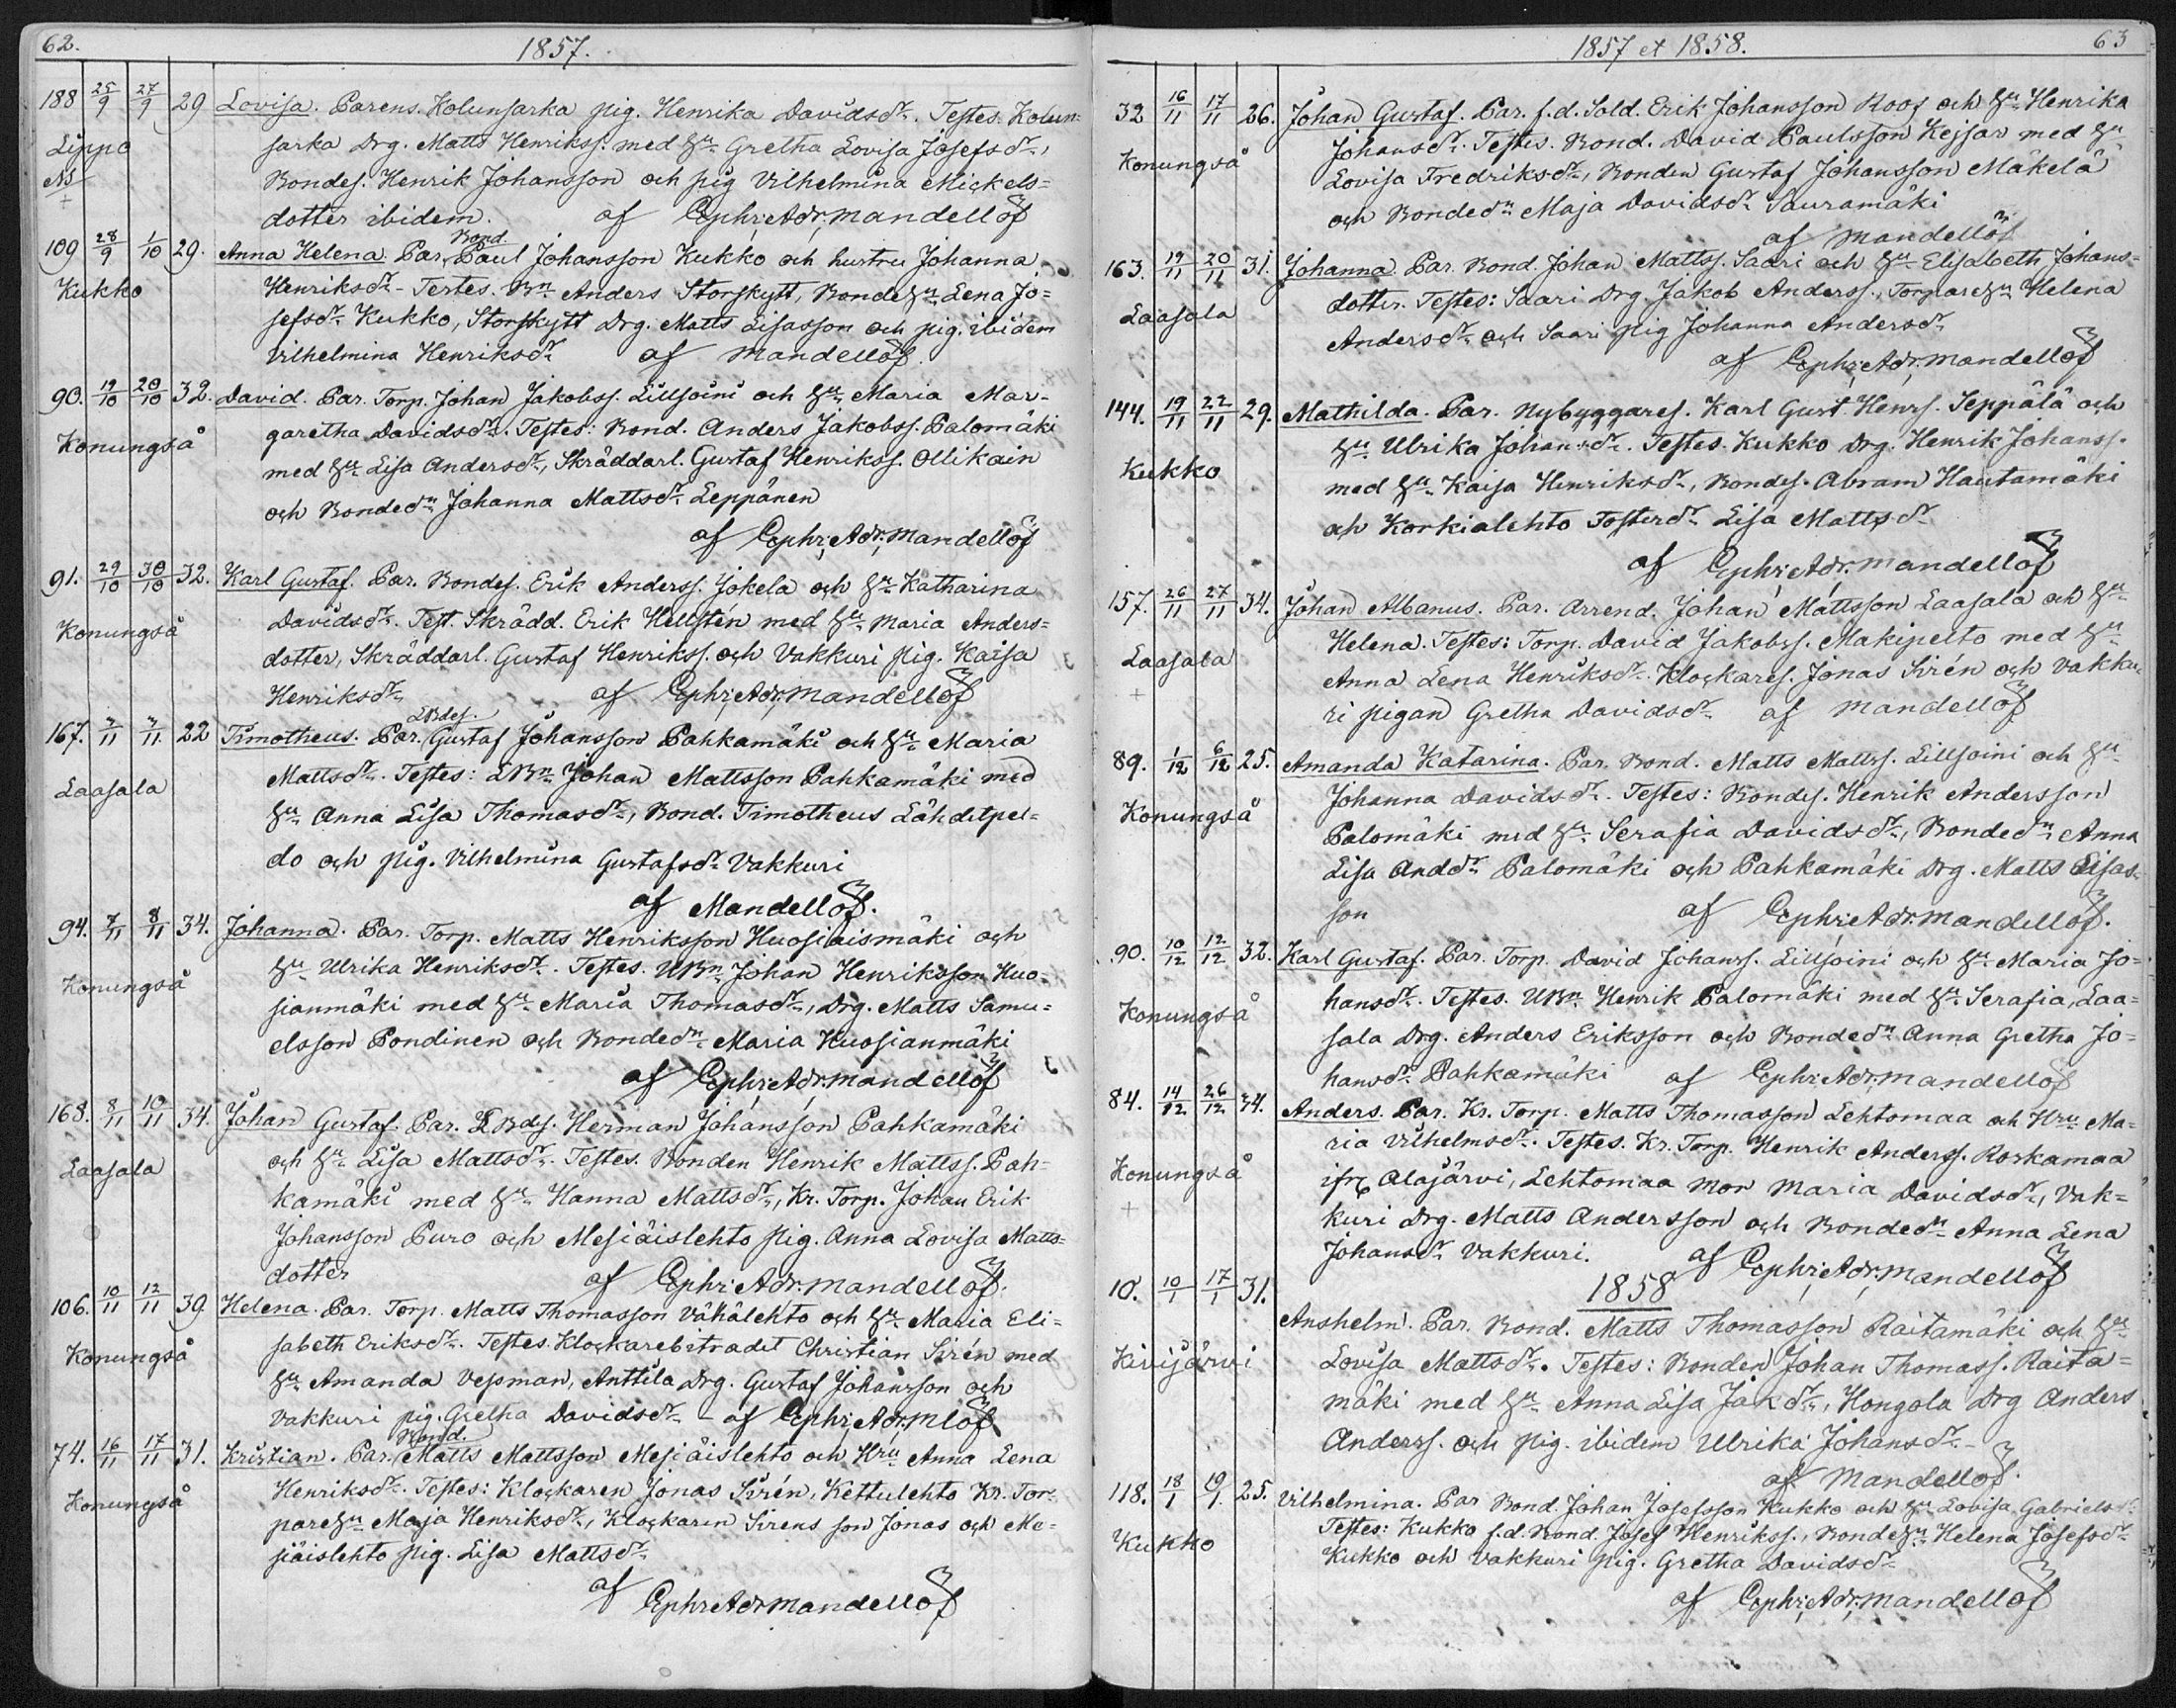 62.
1857.
188 25/9 27/9 29 Lovisa. Parens. Kolunsarka pig. Henrika Davidsdr. Testes. Kolun-
Lippo sarka Drg. Matts Henrikss. med Hu. Gretha Lovisa Josefsdr,
NS Bondes. Henrik Johansson och pig Vilhelmina Mickels=
+ dotter ibidem. af Ephr: Adr. Mandellöf
109 28/9 1/10 29. Anna Helena. Par. Bond. Paul Johansson Kukko och hustru Johanna
Kukko Henriksdr - Testes. Bn Anders Storskytt, Bondehu. Lena Jo=
sefsdr. Kukko, Storskytt Drg. Matts Lisasson och pig. ibidem
Vilhelmina Henriksdr. af Mandellöf.
90. 19/10 20/10 32. David. Par. Torp. Johan Jakobss. Lillsoini och Hu. Maria Mar-
Konungså garetha Davidsdr. Testes: Bond. Anders Jakobss. Palomäki
med Hu. Lisa Andersdr, Skräddarl. Gustaf Henrikss. Ollikain
och Bondedn Johanna Mattsdr. Leppänen
af Ephr: Adr: Mandellöf
91. 29/10 30/10 32. Karl Gustaf. Par. Bondes. Erik Anderss. Jokela och Hu. Katharina
Konungså Davidsdr. Test. Skrädd. Erik Hellstén med Hu. Maria Anders=
dotter, Skräddarl. Gustaf Henrikss. och Vakkuri pig. Kaisa
Henriksdr. af Ephr: Adr: Mandellöf
167. 3/11 3/11 22 Timotheus. Par. LBdes. Gustaf Johansson Pahkamäki och Hu. Maria
Laasala Mattsdr. Testes: LBn Johan Mattsson Pahkamäki med
Hu. Anna Lisa Thomasdr, Bond. Timotheus Lähdetpel-
do och pig. Vilhelmina Gustafsdr. Vakkuri
af Mandellöf.
94. 7/11 8/11 34. Johanna. Par. Torp. Matts Henriksson Huosiaismäki och
Konungså Hu. Ulrika Henriksdr. Testes. UBn Johan Henriksson Huo-
sianmäki med Hu. Maria Thomasdr, Drg. Matts Samu=
elsson Pondinen och Bondedn Maria Huosianmäki
af Ephr: Adr: Mandellöf
168. 8/11 10/11 34 Johan Gustaf. Par. LBds. Herman Johansson Pahkamäki
Laasala och Hu. Lisa Mattsdr. Testes. Bonden Henrik Mattss. Pah-
kamäki med Hu. Hanna Mattsdr, Kr. Torp. Johan Erik
Johansson Puro och Mesiäislehto pig. Anna Lovisa Matts=
dotter af Ephr: Adr: Mandellöf.
106. 10/11 12/11 39. Helena. Par. Torp. Matts Thomasson Vähälehto och Hu. Maria Eli=
Konungså sabeth Eriksdr. Testes. Klockarebitradet Christian Sirén med
Hu Amanda Vesman, Anttila Drg. Gustaf Johansson och
Vakkuri pig. Gretha Davidsdr - af Ephr: Adr: Mlöf
74. 16/11 17/11 31. Kristian. Par. Bond. Matts Mattsson Mesiäislehto och Hru Anna Lena
Konungså Henriksdr. Testes: Klockaren Jonas Sirén, Kettulehto Kr. Tor-
parehu Maja Henriksdr, Klockaren Sirens son Jonas och Me=
siäislehto pig. Lisa Mattsdr.
af Ephr Adr Mandellöf
1857 et 1858.
63
32 16/11 17/11 26. Johan Gustaf. Par. f.d. Sold. Erik Johansson Roos och Hu. Henrika
Konungså Johansdr. Testes. Bond. David Paulsson Kejsar med Hu
Lovisa Fredriksdr, Bonden Gustaf Johansson Mäkelä
och Bondedn Maja Davidsdr. Sauramäki
af Mandellöf
163. 19/11 20/11 31. Johanna. Par. Bond. Johan Mattss. Saari och Hu. Elisabeth Johans=
Laasala dotter. Testes: Saari Drg. Jakob Anderss., Torparehu Helena
Andersdr. och Saari pig Johanna Andersdr.
af Ephr: Adr: Mandellöf
144. 19/11 22/11 29. Mathilda. Par. Nybyggares. Karl Gust. Henrs. Seppälä och
Kukko Hu. Ulrika Johansdr. Testes. Kukko Drg. Henrik Johanss.
med Hu. Kaisa Henriksdr, Bondes. Abram Hautamäki
och Korkialehto Fosterdr. Lisa Mattsdr.
af Ephr: Adr: Mandellöf
157. 26/11 27/11 34. Johan Albanus. Par. Arrend. Johan Mattsson Laasala och Hu
Laasala Helena. Testes: Torp. David Jakobss. Makipelto med Hu
+ Anna Lena Henriksdr. Klockares. Jonas Sirén och Vakku-
ri pigan Gretha Davidsdr. af Mandellöf
89. 1/12 6/12 25. Amanda Katarina. Par. Bond. Matts Mattss. Lillsoini och Hu
Konungså Johanna Davidsdr. Testes: Bondes. Henrik Andersson
Palomäki med Hu. Serafia Davidsdr, Bondedn Anna
Lisa Anddr. Palomäki och Pahkamäki Drg. Matts Lisas-
son af Ephr: Adr: Mandellöf.
90. 10/12 12/12 32. Karl Gustaf. Par. Torp. David Johanss. Lillsoini och Hu Maria Jo=
Konungså hansdr. Testes. UBn Henrik Palomäki med Hu. Serafia, Laa=
sala Drg. Anders Eriksson och Bondedn Anna Gretha Jo=
hansdr. Pahkamäki af Ephr: Adr: Mandellöf
84. 14/12 26/12 34. Anders. Par. Kr. Torp. Matts Thomasson Lehtomaa och Hru Ma=
Konungså ria Vilhelmsdr. Testes. Kr. Torp. Henrik Anderss. Roskamaa
+ ifr. Alajärvi, Lehtomaa mor Maria Davidsdr, Vak=
kuri Drg. Matts Andersson och Bondedn Anna Lena
Johansdr. Vakkuri. af Ephr: Adr: Mandellöf
1858
10. 10/1 17/1 31. Anshelm. Par. Bond. Matts Thomasson Raitamäki och Hu
Kivijärvi Lovisa Mattsdr. Testes: Bonden Johan Thomass. Raita=
mäki med Hu. Anna Lisa Jakdr, Hongola Drg Anders
Anderss. och pig. ibidem Ulrika Johansdr. -
af Mandellöf.
118. 18/1 19/1 25. Vilhelmina. Par Bond. Johan Josefsson Kukko och Hu. Lovisa Gabrielsdr.
Kukko Testes: Kukko f.d. Bond. Josef Henrikss., Bondehu Helena Josefsdr
Kukko och Vakkuri pig. Gretha Davidsdr.
af Ephr: Adr: Mandellöf